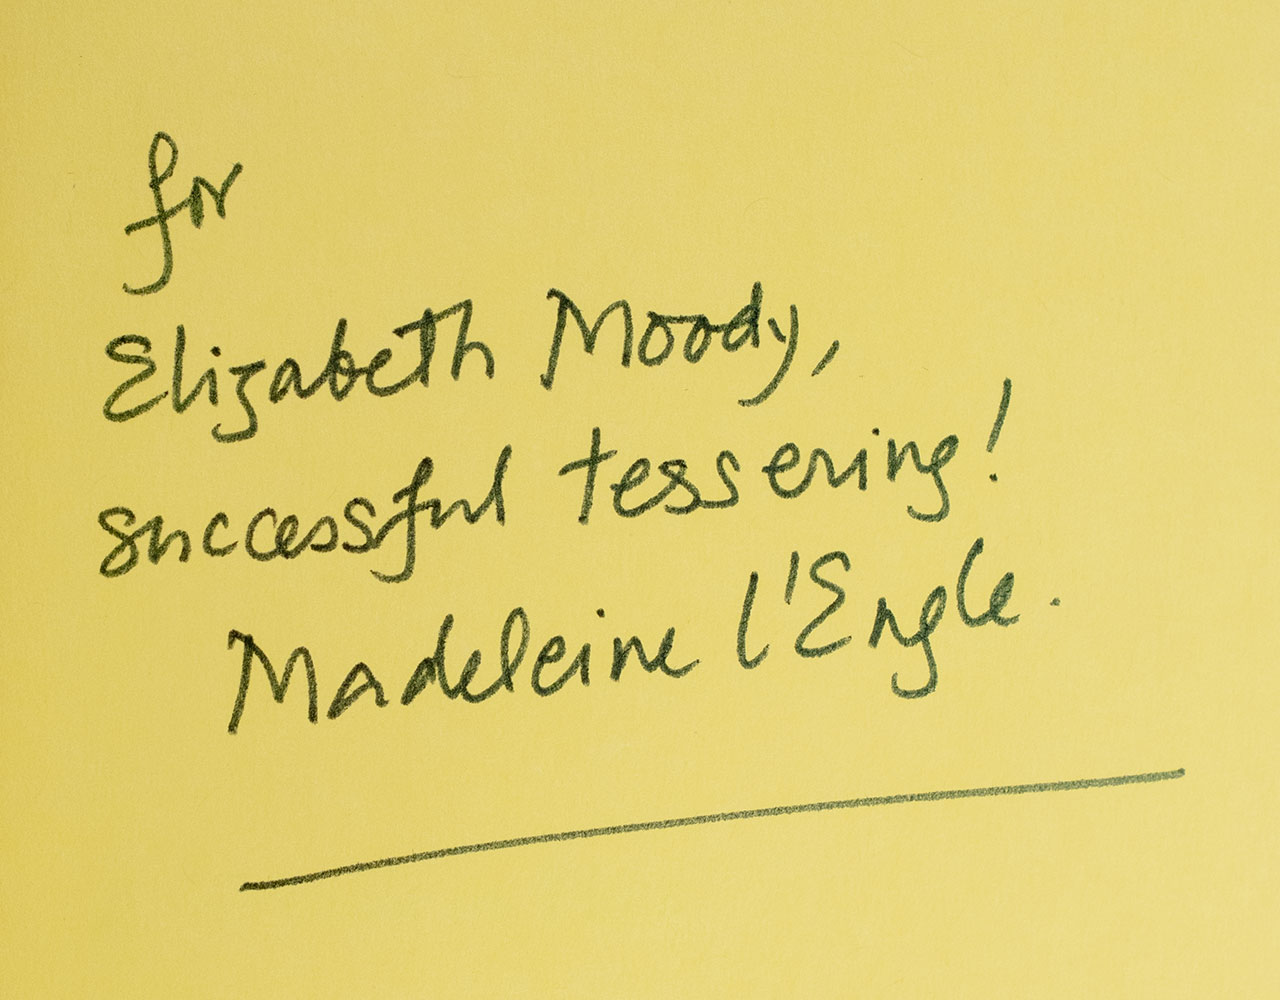 for
Elizabeth Moody,
successful tessering!
Madeleine l'Engle.